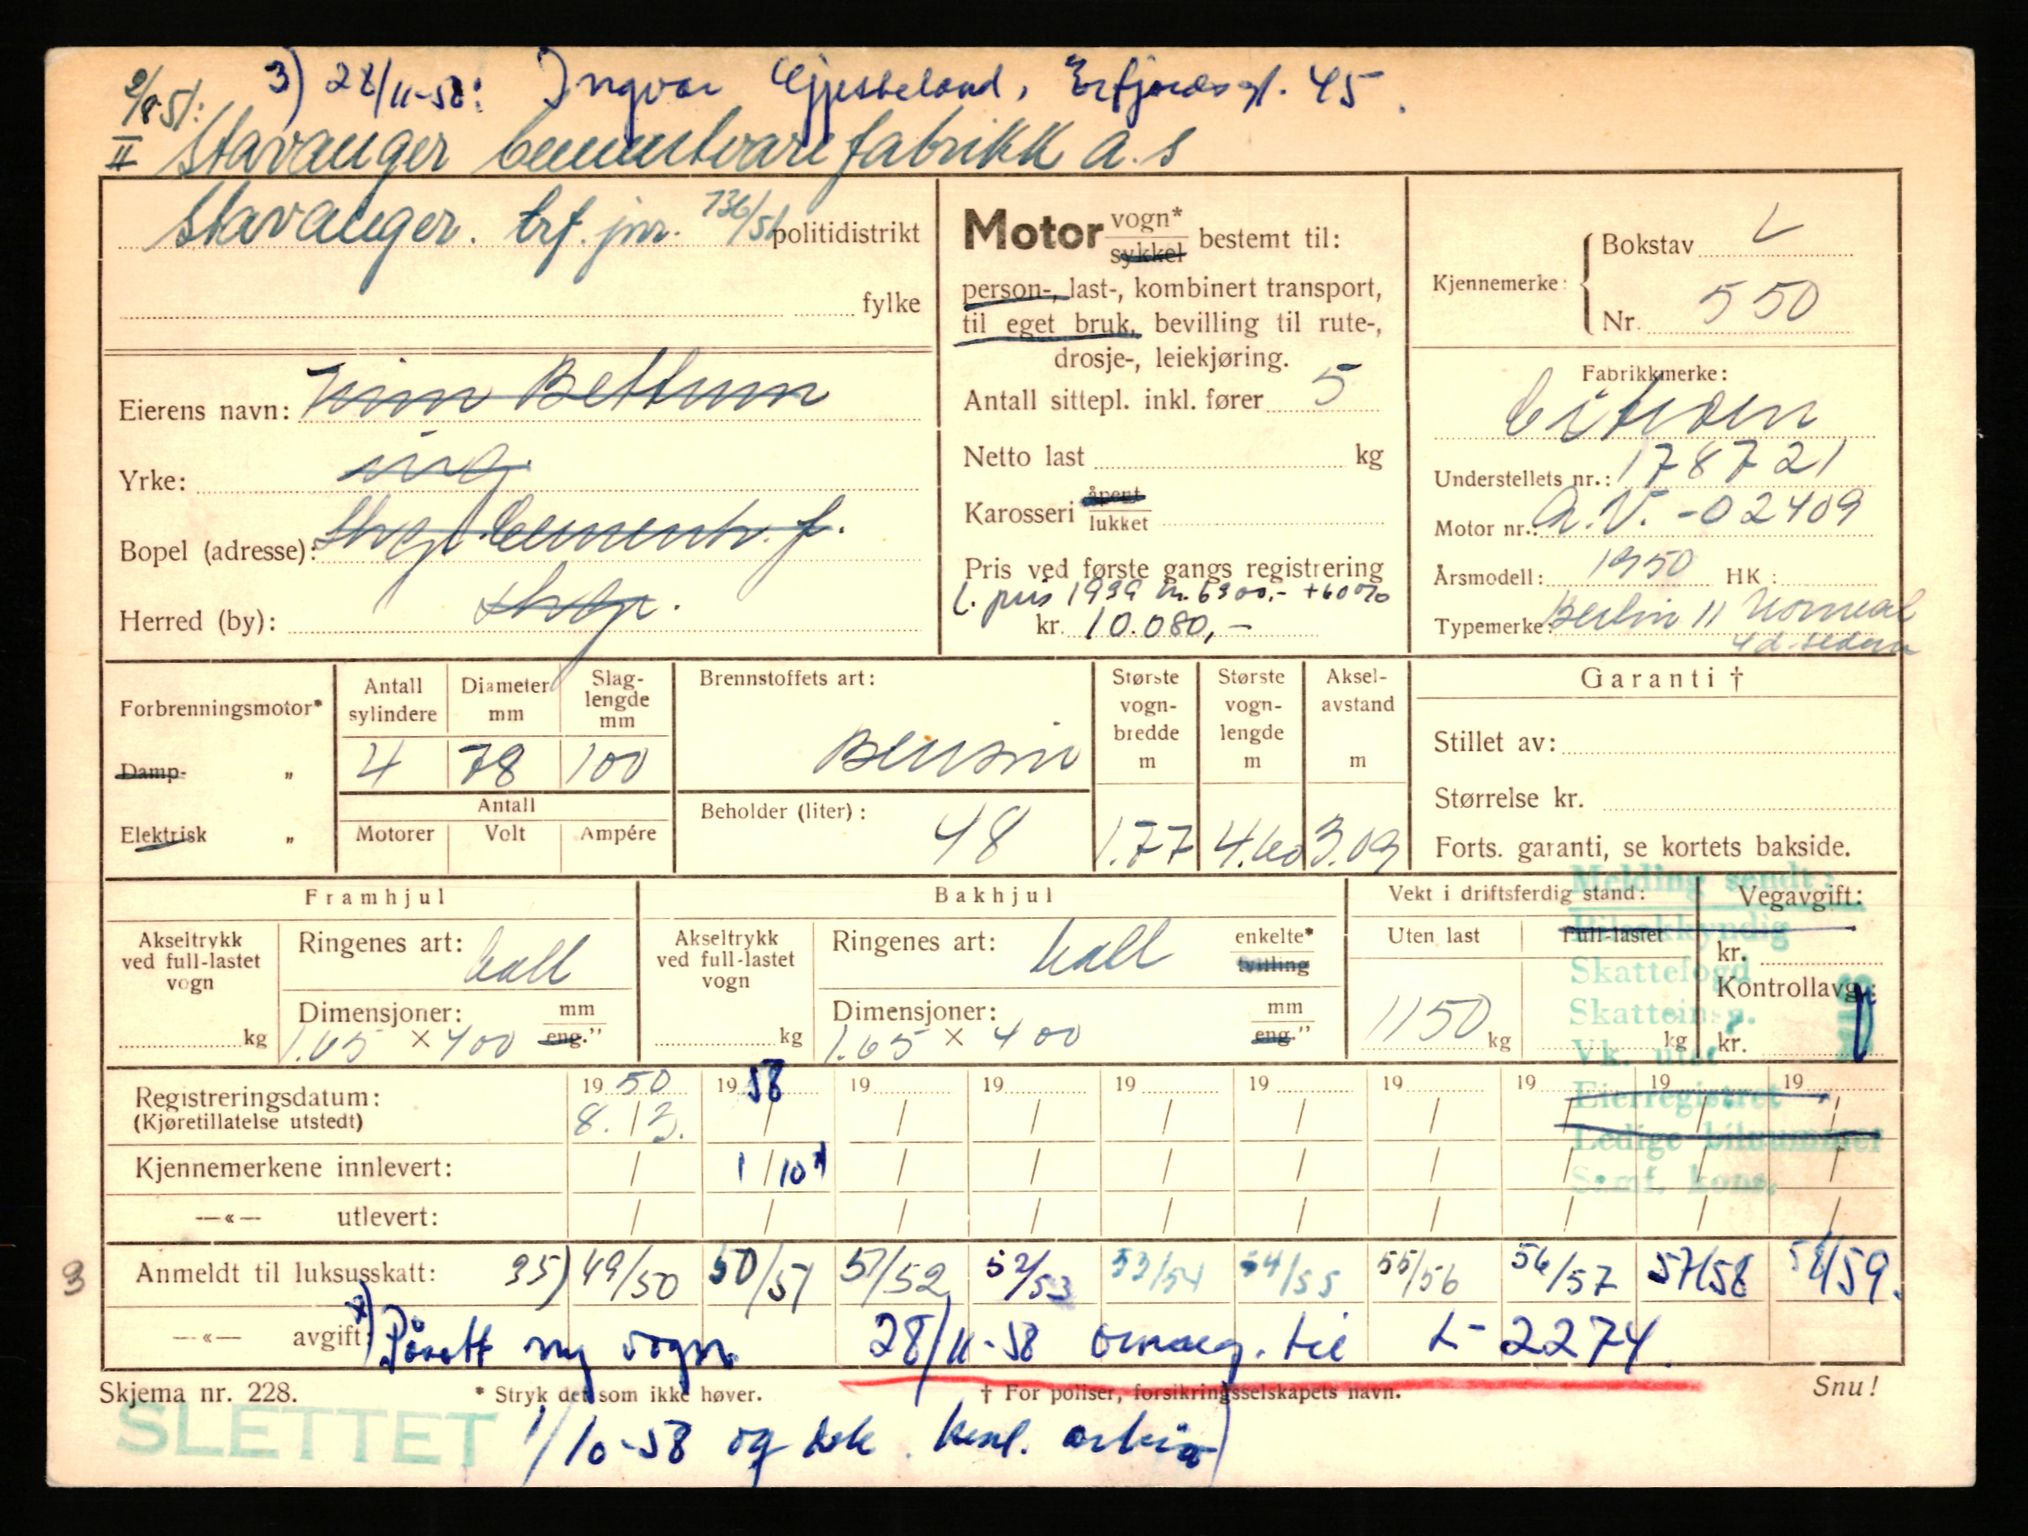 3) 28/11-58: Ingvar Gjesteland, Erfjordsgt. 45.
2/8 51:
II Stavanger Cementvarefabrikk a.s
Stavanger. brf. jnr. 736/51 politidistrikt
fylke
Eierens navn: Finn Bettum
Yrke: ing.
Bopel (adresse): Stvgr. Cementv. f.
Herred (by): Stvgr.
Motor vogn* sykkel bestemt til:
person-, last-, kombinert transport,
til eget bruk, bevilling til rute-,
drosje-, leiekjøring.
Antall sittepl. inkl. fører 5
Netto last kg
Karosseri åpent lukket
Pris ved første gangs registrering
L. pris 1939 kr. 6300,- +60%
kr. 10.080,-
Kjennemerke: Bokstav L
Nr. 550
Fabrikkmerke:
Citroen
Understellets nr.: 178721
Motor nr.: A.V.-02409
Årsmodell: 1950 HK:
Typemerke: Berlin 11 Normal
4 d. sedan
Forbrenningsmotor*
Damp- "
Elektrisk "
Antall sylindere 4
Diameter mm 78
Slaglengde mm 100
Antall
Motorer Volt Ampére
Brennstoffets art:
Bensin
Beholder (liter):
48
Største vogn-bredde m 1.77
Største vogn-lengde m 4.60
Aksel-avstand m 3.09
Garanti †
Stillet av:
Størrelse kr.
Forts. garanti, se kortets bakside.
Framhjul
Akseltrykk ved full-lastet vogn kg
Ringenes art: hall
Dimensjoner: mm eng."
1.65 x 400
Bakhjul
Akseltrykk ved full-lastet vogn kg
Ringenes art: hall enkelte* tvilling
Dimensjoner: mm eng."
1.65 x 400
Vekt i driftsferdig stand:
Uten last Full-lastet
1150 kg kg
Vegavgift:
kr.
Kontrollavg.:
kr.
Melding sendt:
Bilsakkyndig
Skattefogd
Skatteinsp.
Vk. utst
Eierregistret
Ledige bilnummer
Samf. kons.
Registreringsdatum: 19 50 19 58 19 19 19 19 19 19 19 19
(Kjøretillatelse utstedt) 8. / 3.
Kjennemerkene innlevert: 1/10 x
—«— utlevert:
3 Anmeldt til luksusskatt: 35) 49/50 50/51 51/52 52/53 53/54 54/55 55/56 56/57 57/58 58/59.
—«— avgift: x) Påsatt ny vogn 28/11-58 omreg. til L-2274.
Skjema nr. 228. * Stryk det som ikke høver. † For poliser, forsikringsselskapets navn. Snu!
SLETTET 1/10-58 og